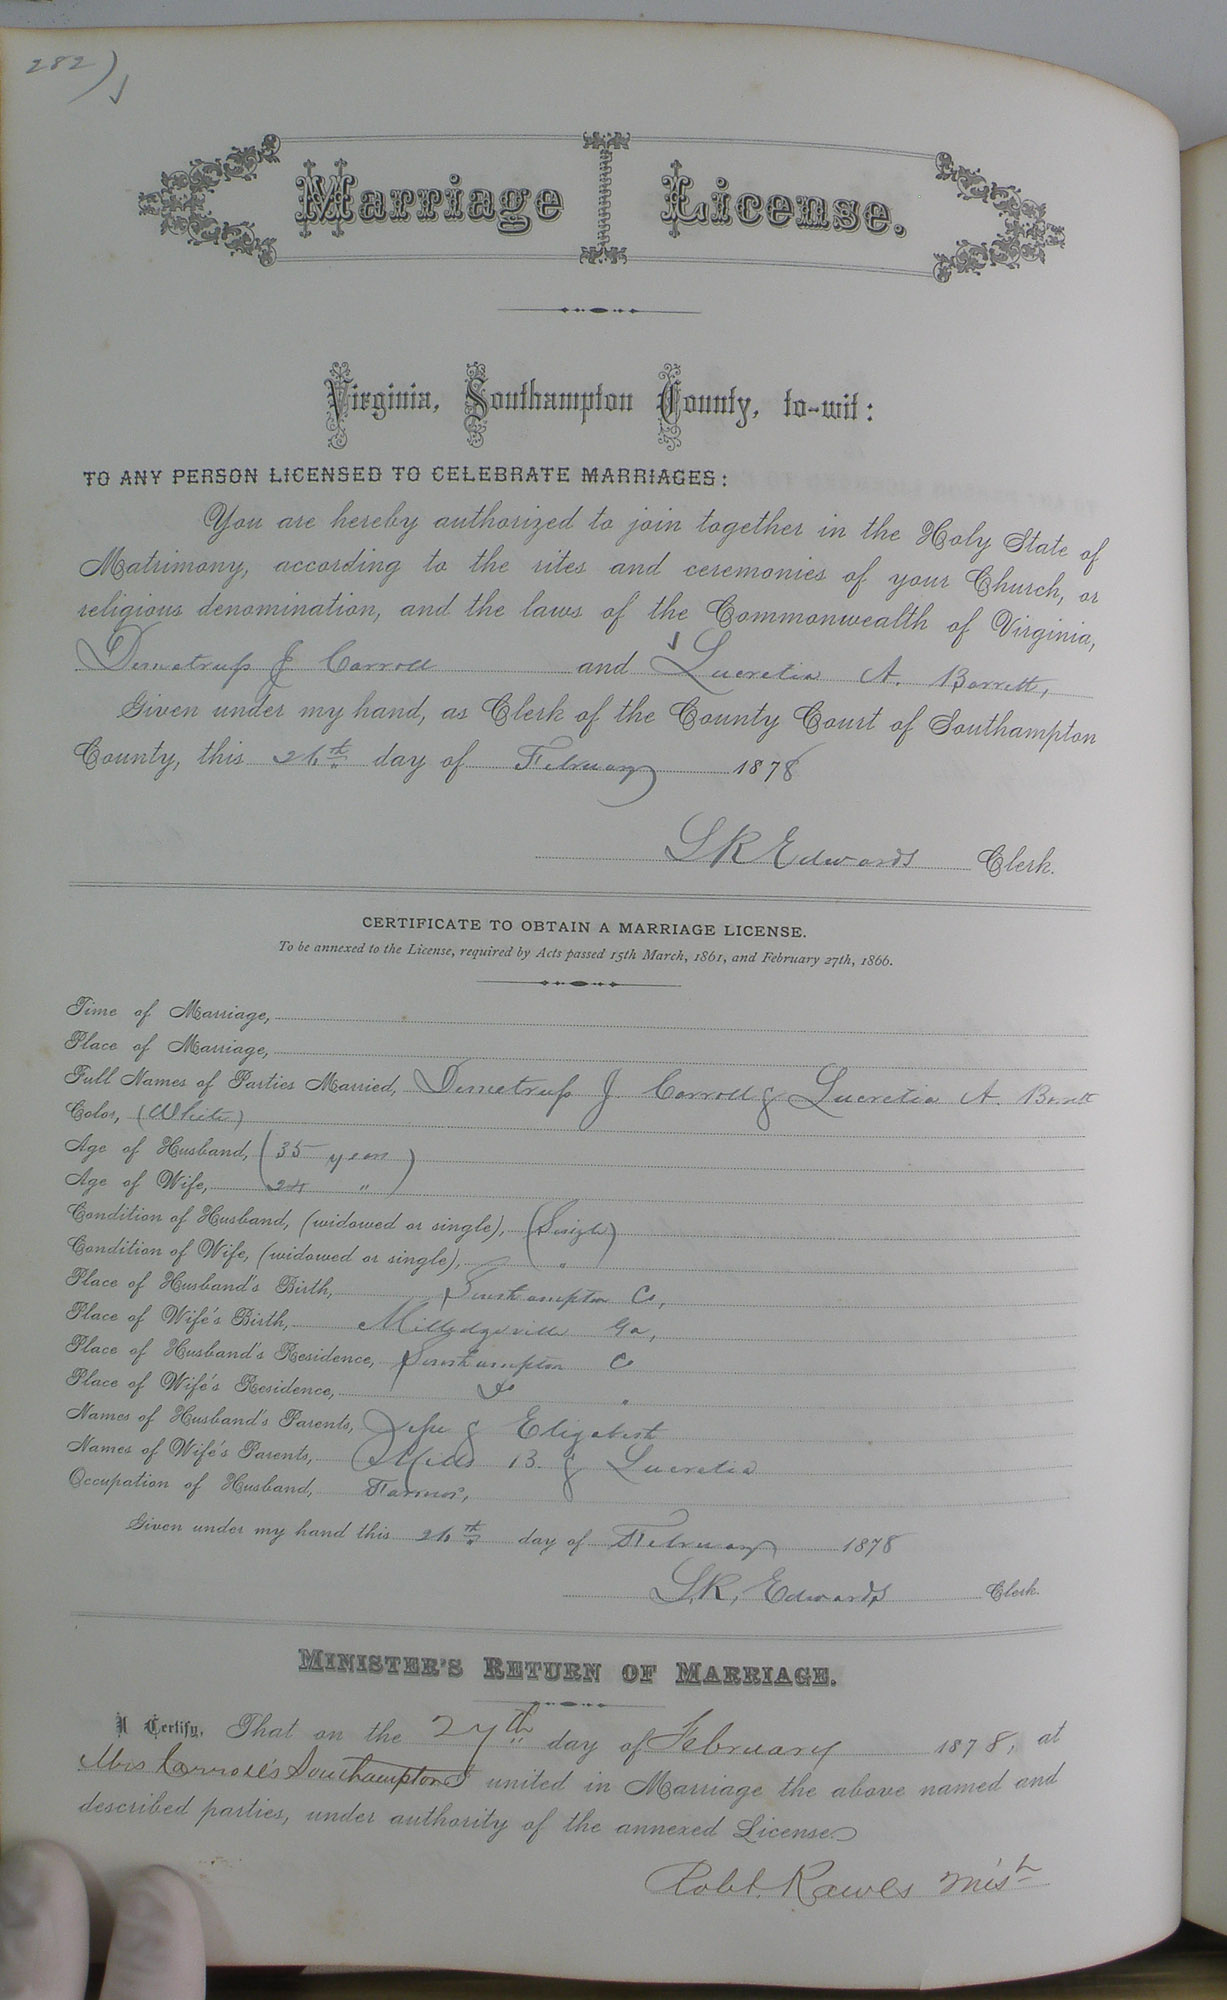 282)
Marriage License.
Virginia, Southampton County, to-wit:
TO ANY PERSON LICENSED TO CELEBRATE MARRIAGES:
You are hereby authorized to join together in the Holy State of
Matrimony, according to the rites and ceremonies of your Church, or
religious denomination, and the laws of the Commonwealth of Virginia,
J Carroll and Lucretia A. Barrett,
Given under my hand, as Clerk of the County Court of Southampton
County, this 26th day of February 1878
L R Edwards Clerk.
CERTIFICATE TO OBTAIN A MARRIAGE LICENSE.
To be annexed to the License, required by Acts passed 15th March, 1861, and February 27th, 1866.
Time of Marriage,
Place of Marriage,
Full Names of Parties Married, J Carroll & Lucretia A. Barrett
Color, (White)
Age of Husband, (35 years)
Age of Wife, "
Condition of Husband, (widowed or single), (Single)
Condition of Wife, (widowed or single), "
Place of Husband's Birth, Southampton Co,
Place of Wife's Birth, Milledgeville Ga,
Place of Husband's Residence, Southampton Co
Place of Wife's Residence, Do "
Names of Husband's Parents, & Elizabeth
Names of Wife's Parents, Mills B. & Lucretia
Occupation of Husband, Farmer,
Given under my hand this 26th day of February 1878
L.R. Edwards Clerk.
MINISTER'S RETURN OF MARRIAGE.
I Certify, That on the 27th day of February 1878, at
Mrs Carroll's Southampton I united in Marriage the above named and
described parties, under authority of the annexed License
Robt. Rawls